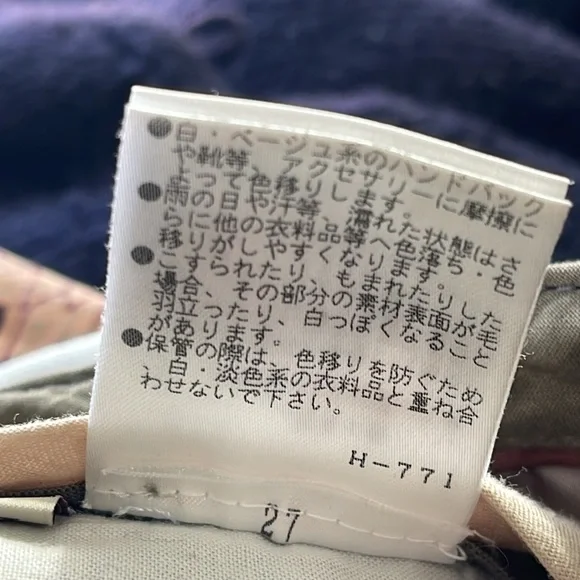 ●白・ベージュ系のハンドバック
や靴等、アクセサリーに摩擦に
よって色移りします。
●雨や汗等で濡れた状態はさ
らに他の衣料品等へ色落ち・色
移りがしやすくなります。
●こすられたり、もまれたりした
場合、その部分の素材表面が毛
羽立ったり、白っぽくなること
があります。
●保管の際は、色移りを防ぐため
、白・淡色系の衣料品と重ね合
わせないで下さい。
H-771
27